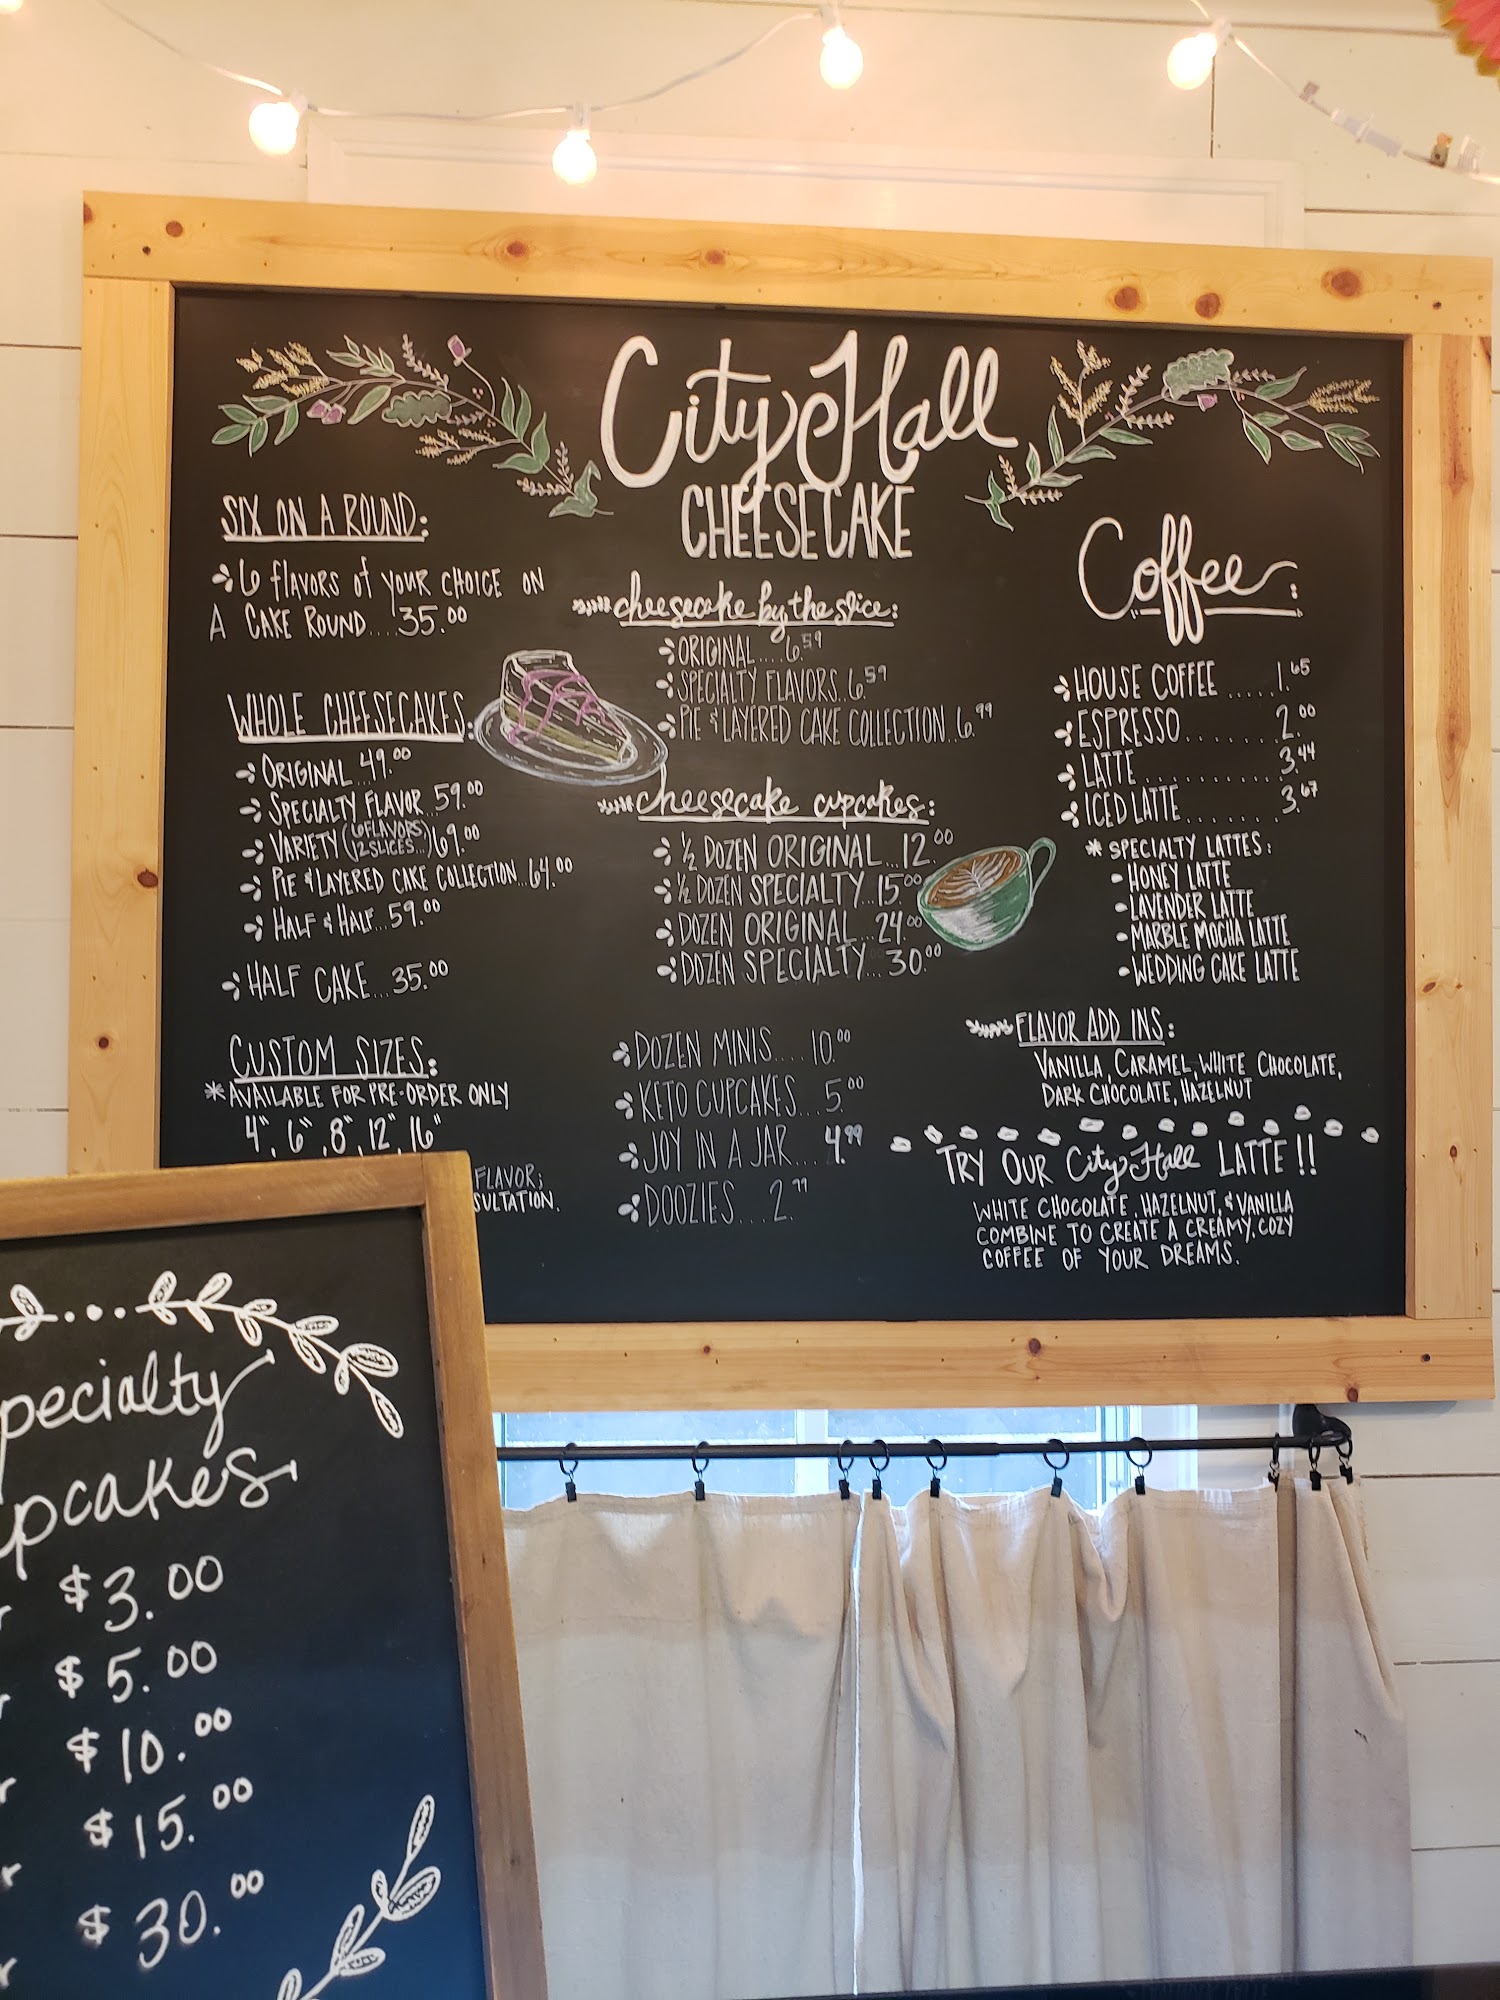 City Hall
CHEESECAKE
SIX ON A ROUND:
6 flAVORS of YOUR CHOICE ON
A CAKE ROUND....35.00
WHOLE CHEESECAKES:
ORIGINAL...49.00
SPECIALTY FLAVOR...59.00
VARIETY (6 FLAVORS, 2 SLICES...) 69.00
PIE & LAYERED CAKE COLLECTION...64.00
HALF & HALF...59.00
HALF CAKE...35.00
CUSTOM SIZES:
*AVAILABLE FOR PRE-ORDER ONLY
4", 6", 8", 12", 16"
FLAVOR;
SULTATION.
cheesecake by the slice:
ORIGINAL....6.59
SPECIALTY FLAVORS..6.59
PIE & LAYERED CAKE COLLECTION..6.99
cheesecake cupcakes:
1/2 DOZEN ORIGINAL...12.00
1/2 DOZEN SPECIALTY..15.00
DOZEN ORIGINAL...24.00
DOZEN SPECIALTY...30.00
DOZEN MINIS....10.00
KETO CUPCAKES...5.00
JOY IN A JAR....4.99
DOOZIES...2.99
Coffee:
HOUSE COFFEE.....1.65
ESPRESSO.......2.00
LATTE..........3.44
ICED LATTE.......3.67
* SPECIALTY LATTES:
- HONEY LATTE
- LAVENDER LATTE
- MARBLE MOCHA LATTE
- WEDDING CAKE LATTE
FLAVOR ADD INS:
VANILLA, CARAMEL, WHITE CHOCOLATE,
DARK CHOCOLATE, HAZELNUT
TRY OUR City Hall LATTE!!
WHITE CHOCOLATE, HAZELNUT, & VANILLA
COMBINE TO CREATE A CREAMY, COZY
COFFEE OF YOUR DREAMS.
pecialty
pcakes
r $3.00
r $5.00
r $10.00
r $15.00
r $30.00